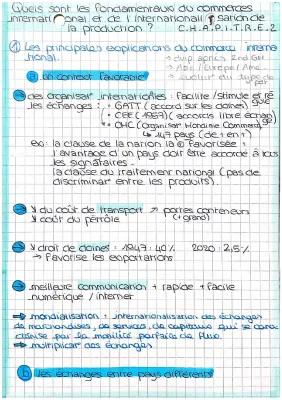 Quels sont les fondamentaux du commerces
international et de l'internationalisation de
la production ? C.H.A.P.I.T.R.E.2
① Les principales explications du commerce interna
tional.
a) un contexte favorable
→ des organisat° internationales : facilite / stimule et ré
les échanges : • GATT (accord sur les doines)
• CEE (1957) (accords libre échange)
• OMC (Organisat° Mondiale Commerce)
↳ 147 pays (de + en +)
ex : la clause de la nation la ⊕ Favorisée :
l'avantage d'un pays doit être accordé à tous
les signataires.
la clause du traitement national (pas de
discriminat° entre les produits).
→ ↘ du coût de transport ↗ portes conteneurs
↘ coût du pétrole (+ grand)
→ ↘ droit de doines : 1947 : 40% 2020 : 2,5%
→ Favorise les exportations
→ meilleure communication + rapide + facile
numérique / internet
⇒ mondialisation : internationalisation des échanges
de marchandises, de services, de capitaux qui se carac
térise par la mobilité parfaite de flux.
⇒ multiplicat° des échanges
b) les échanges entre pays différents